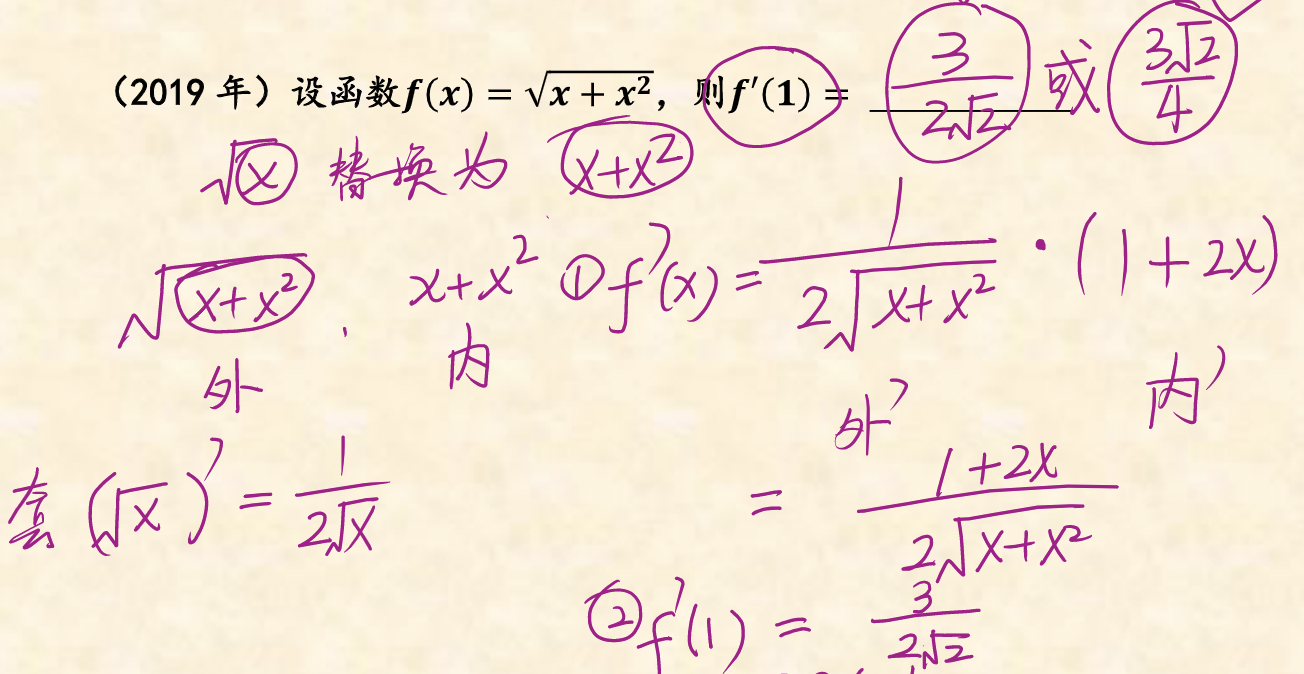 (2019 年) 设函数f(x) = √(x + x²), 则f′(1) = 3/(2√2) 或 3√2/4
√x 替换为 x+x²
√(x+x²) · x+x² ①f′(x) = 1/(2√(x+x²)) · (1+2x)
外 内 外′ 内′
套 (√x)′ = 1/(2√x) = (1+2x)/(2√(x+x²))
②f′(1) = 3/(2√2)